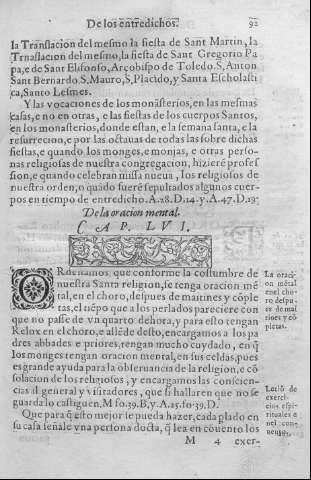 De los entredichos. 92
la Translacion del mesmo la fiesta de Sant Martin, la
Trnaslacion del mesmo, la fiesta de Sant Gregorio Pa
pa, e de Sant Elsfonso, Arçobispo de Toledo. S, Anton
Sant Bernardo. S, Mauro, S, Placido, y Santa Escholasti
ca, Santo Lesmes.
Y las vocaciones de los monasterios, en las mesmas
casas, e no en otras, e las fiestas de los cuerpos Santos,
en los monasterios, donde estan, e la semana santa, e la
resurrecion, e por las octauas de todas las sobre dichas
fiestas, e quando los monges, e monjas, e otras perso-
nas religiosas de nuestra congregacion, hizierē profes
sion, e quando celebran missa nueua, los religiosos de
nuestra orden, o quādo fuerē sepultados algunos cuer-
pos en tiempo de entredicho. A. 28. D. 14. y A. 47. D. 19.
De la oracion mental.
CAP. LVI.
ORdenamos, que conforme la costumbre de
nuestra Santa religion, se tenga oracion mē
tal, en el choro, despues de maitines y cōple
tas, el tiēpo que a los perlados pareciere con
que no passe de vn quarto de hora, y para esto tengan
Relox en el choro, e allēde desto, encargamos a los pa
dres abbades e priores, tengan mucho cuydado, en q̄
los monges tengan oracion mental, en sus celdas, pues
es grande ayuda para la obseruancia de la religion, e cō
solacion de los religiosos, y encargamos las conscien-
cias al general y visitadores, que si hallaren que no se
guarda lo castiguen. M fo. 39. B, y A. 25. fo. 39. D.
Que para q̄ esto mejor se pueda hazer, cada plado en
su casa señale vna persona docta, q̄ lea en cōuento los
M 4 exer-
La oraciō
mētal
en el cho-
ro despu-
es de mai
tines y cō
pletas.
Lectiō de
exerci-
cios espi-
rituales e
nel con-
uento.